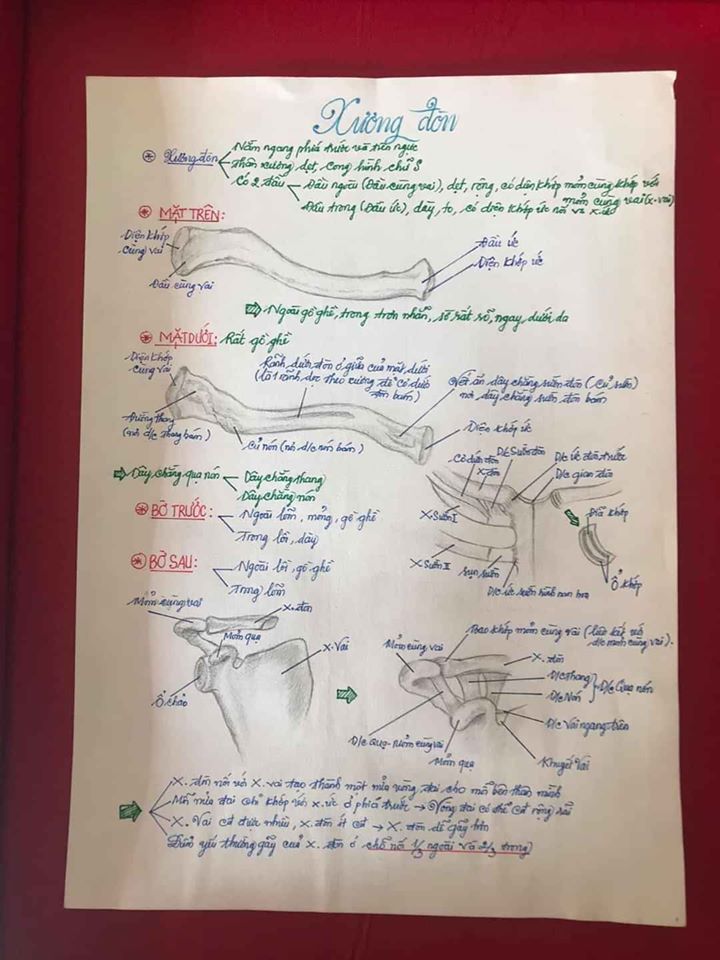 Xương đòn
Xương đòn
Nằm ngang phía trước và trên ngực
Thân xương dẹt, cong hình chữ S
Có 2 đầu
Đầu ngoài (Đầu cùng vai), dẹt, rộng, có diện khớp mỏm cùng khớp với
mỏm cùng vai (x. vai)
Đầu trong (Đầu ức), dày, to, có diện khớp ức nối với x. ức
MẶT TRÊN:
Diện khớp
cùng vai
Đầu cùng vai
Đầu ức
Diện khớp ức
Ngoài gồ ghề, trong trơn nhẵn, sờ rất rõ, ngay dưới da
MẶT DƯỚI: Rất gồ ghề
Diện khớp
cùng vai
Rãnh dưới đòn ở giữa của mặt dưới
(là 1 rãnh dọc theo xương để cơ dưới
đòn bám)
Vết ấn dây chằng sườn đòn (Củ sườn)
nơi dây chằng sườn đòn bám
Đường thang
(nơi d/c thang bám)
Củ nón (nơi d/c nón bám)
Diện khớp ức
Dây chằng quạ nón
Dây chằng thang
Dây chằng nón
Cơ dưới đòn
X. đòn
D/c Sườn đòn
D/c ức đòn trước
D/c gian đòn
X. Sườn I
X. Sườn II
Sụn sườn
D/c ức sườn hình nan hoa
Đĩa khớp
Ổ khớp
BỜ TRƯỚC:
Ngoài lõm, mỏng, gồ ghề
Trong lồi, dày
BỜ SAU:
Ngoài lồi, gồ ghề
Trong lõm
Mỏm cùng vai
X. đòn
Mỏm quạ
X. Vai
Ổ chảo
Bao khớp mỏm cùng vai (liên kết với
d/c mỏm cùng vai).
Mỏm cùng vai
X. đòn
D/c Thang
D/c Nón
D/c Quạ nón
D/c Vai ngang trên
D/c Quạ-mỏm cùng vai
Mỏm quạ
Khuyết Vai
X. đòn nối với X. vai tạo thành một nửa vòng đai cho mỗi bên thân mình
Mỗi nửa đai chỉ khớp với x. ức ở phía trước → Vòng đai có thể cđ rộng rãi
X. Vai cđ được nhiều, x. đòn ít cđ → X. đòn dễ gãy hơn
Điểm yếu thường gãy của x. đòn ở chỗ nối 1/3 ngoài và 2/3 trong